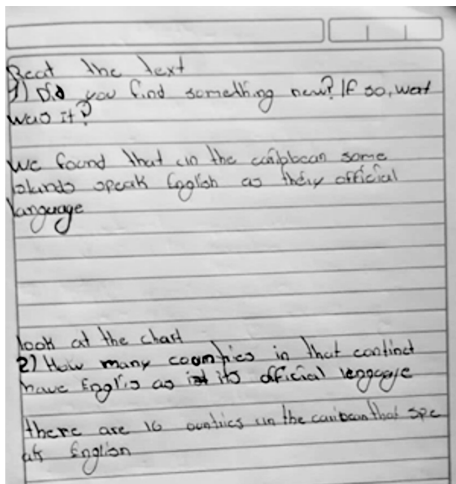 Reat the text
1) Did you find something new? If so, wat
was it?
We found that in the caribbean some
Islands speak English as their official
language
look at the chart
2) How many countries in that continct
have Englis as its official lenguage
there are 16 ountiics in the caribean that spe
ak English